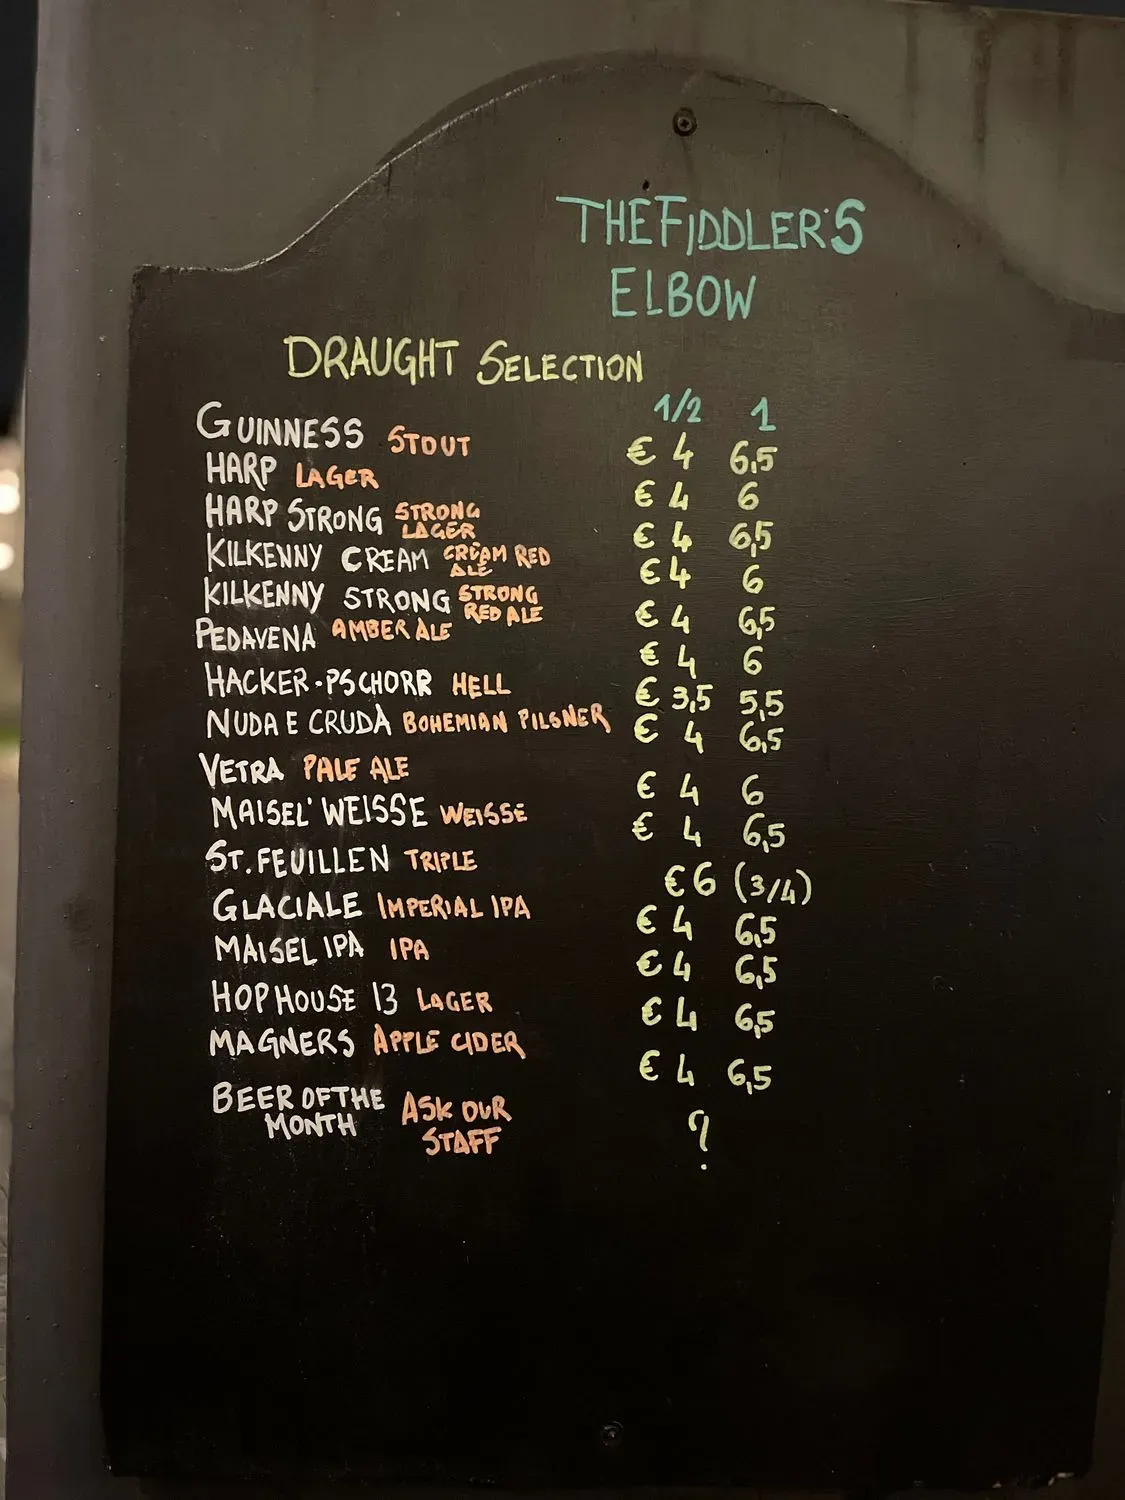 THE FIDDLER'S
ELBOW
DRAUGHT SELECTION
1/2 1
GUINNESS STOUT € 4 6,5
HARP LAGER € 4 6
HARP STRONG STRONG LAGER € 4 6,5
KILKENNY CREAM CREAM RED ALE € 4 6
KILKENNY STRONG STRONG RED ALE € 4 6,5
PEDAVENA AMBER ALE € 4 6
HACKER-PSCHORR HELL € 3,5 5,5
NUDA E CRUDA BOHEMIAN PILSNER € 4 6,5
VETRA PALE ALE € 4 6
MAISEL' WEISSE WEISSE € 4 6,5
ST. FEUILLEN TRIPLE € 6 (3/4)
GLACIALE IMPERIAL IPA € 4 6,5
MAISEL IPA IPA € 4 6,5
HOP HOUSE 13 LAGER € 4 6,5
MAGNERS APPLE CIDER € 4 6,5
BEER OF THE MONTH ASK OUR STAFF ?